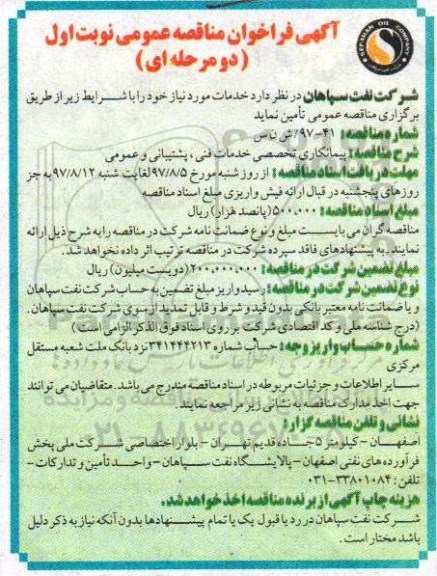 آگهی فراخوان مناقصه عمومی نوبت اول
(دو مرحله ای)
SEPAHAN OIL COMPANY
شرکت نفت سپاهان در نظر دارد خدمات مورد نیاز خود را با شرایط زیر از طریق
برگزاری مناقصه عمومی تأمین نماید
شماره مناقصه: ۴۱-۹۷/ش ن س
شرح مناقصه: پیمانکاری تخصصی خدمات فنی، پشتیبانی و عمومی
مهلت دریافت اسناد مناقصه: از روز شنبه مورخ ۹۷/۸/۵ لغایت شنبه ۹۷/۸/۱۲ به جز
روزهای پنجشنبه در قبال ارائه فیش واریزی مبلغ اسناد مناقصه
مبلغ اسناد مناقصه: ۵۰۰.۰۰۰ (پانصد هزار) ریال
مناقصه گران می بایست مبلغ و نوع ضمانت نامه شرکت در مناقصه را به شرح ذیل ارائه
نمایند. به پیشنهادهای فاقد سپرده شرکت در مناقصه ترتیب اثر داده نخواهد شد.
مبلغ تضمین شرکت در مناقصه: ۲۰۰.۰۰۰.۰۰۰ (دویست میلیون) ریال
نوع تضمین شرکت در مناقصه: رسید واریز مبلغ تضمین به حساب شرکت نفت سپاهان
و یا ضمانت نامه معتبر بانکی بدون قید و شرط و قابل تمدید از سوی شرکت نفت سپاهان.
(درج شناسه ملی و کد اقتصادی شرکت بر روی اسناد فوق الذکر الزامی است)
شماره حساب واریز وجه: حساب شماره ۳۴۱۴۴۴۲۱۳ نزد بانک ملت شعبه مستقل
مرکزی
سایر اطلاعات و جزئیات مربوطه در اسناد مناقصه مندرج می باشد. متقاضیان می توانند
جهت اخذ مدارک مناقصه به نشانی زیر مراجعه نمایند.
نشانی و تلفن مناقصه گزار:
اصفهان - کیلومتر ۵ جاده قدیم تهران - بلوار اختصاصی شرکت ملی پخش
فرآورده های نفتی اصفهان - پالایشگاه نفت سپاهان - واحد تأمین و تدارکات -
تلفن: ۳۳۸۰۱۰۸۴-۰۳۱
هزینه چاپ آگهی از برنده مناقصه اخذ خواهد شد.
شرکت نفت سپاهان در رد یا قبول یک یا تمام پیشنهادها بدون آنکه نیاز به ذکر دلیل
باشد مختار است.